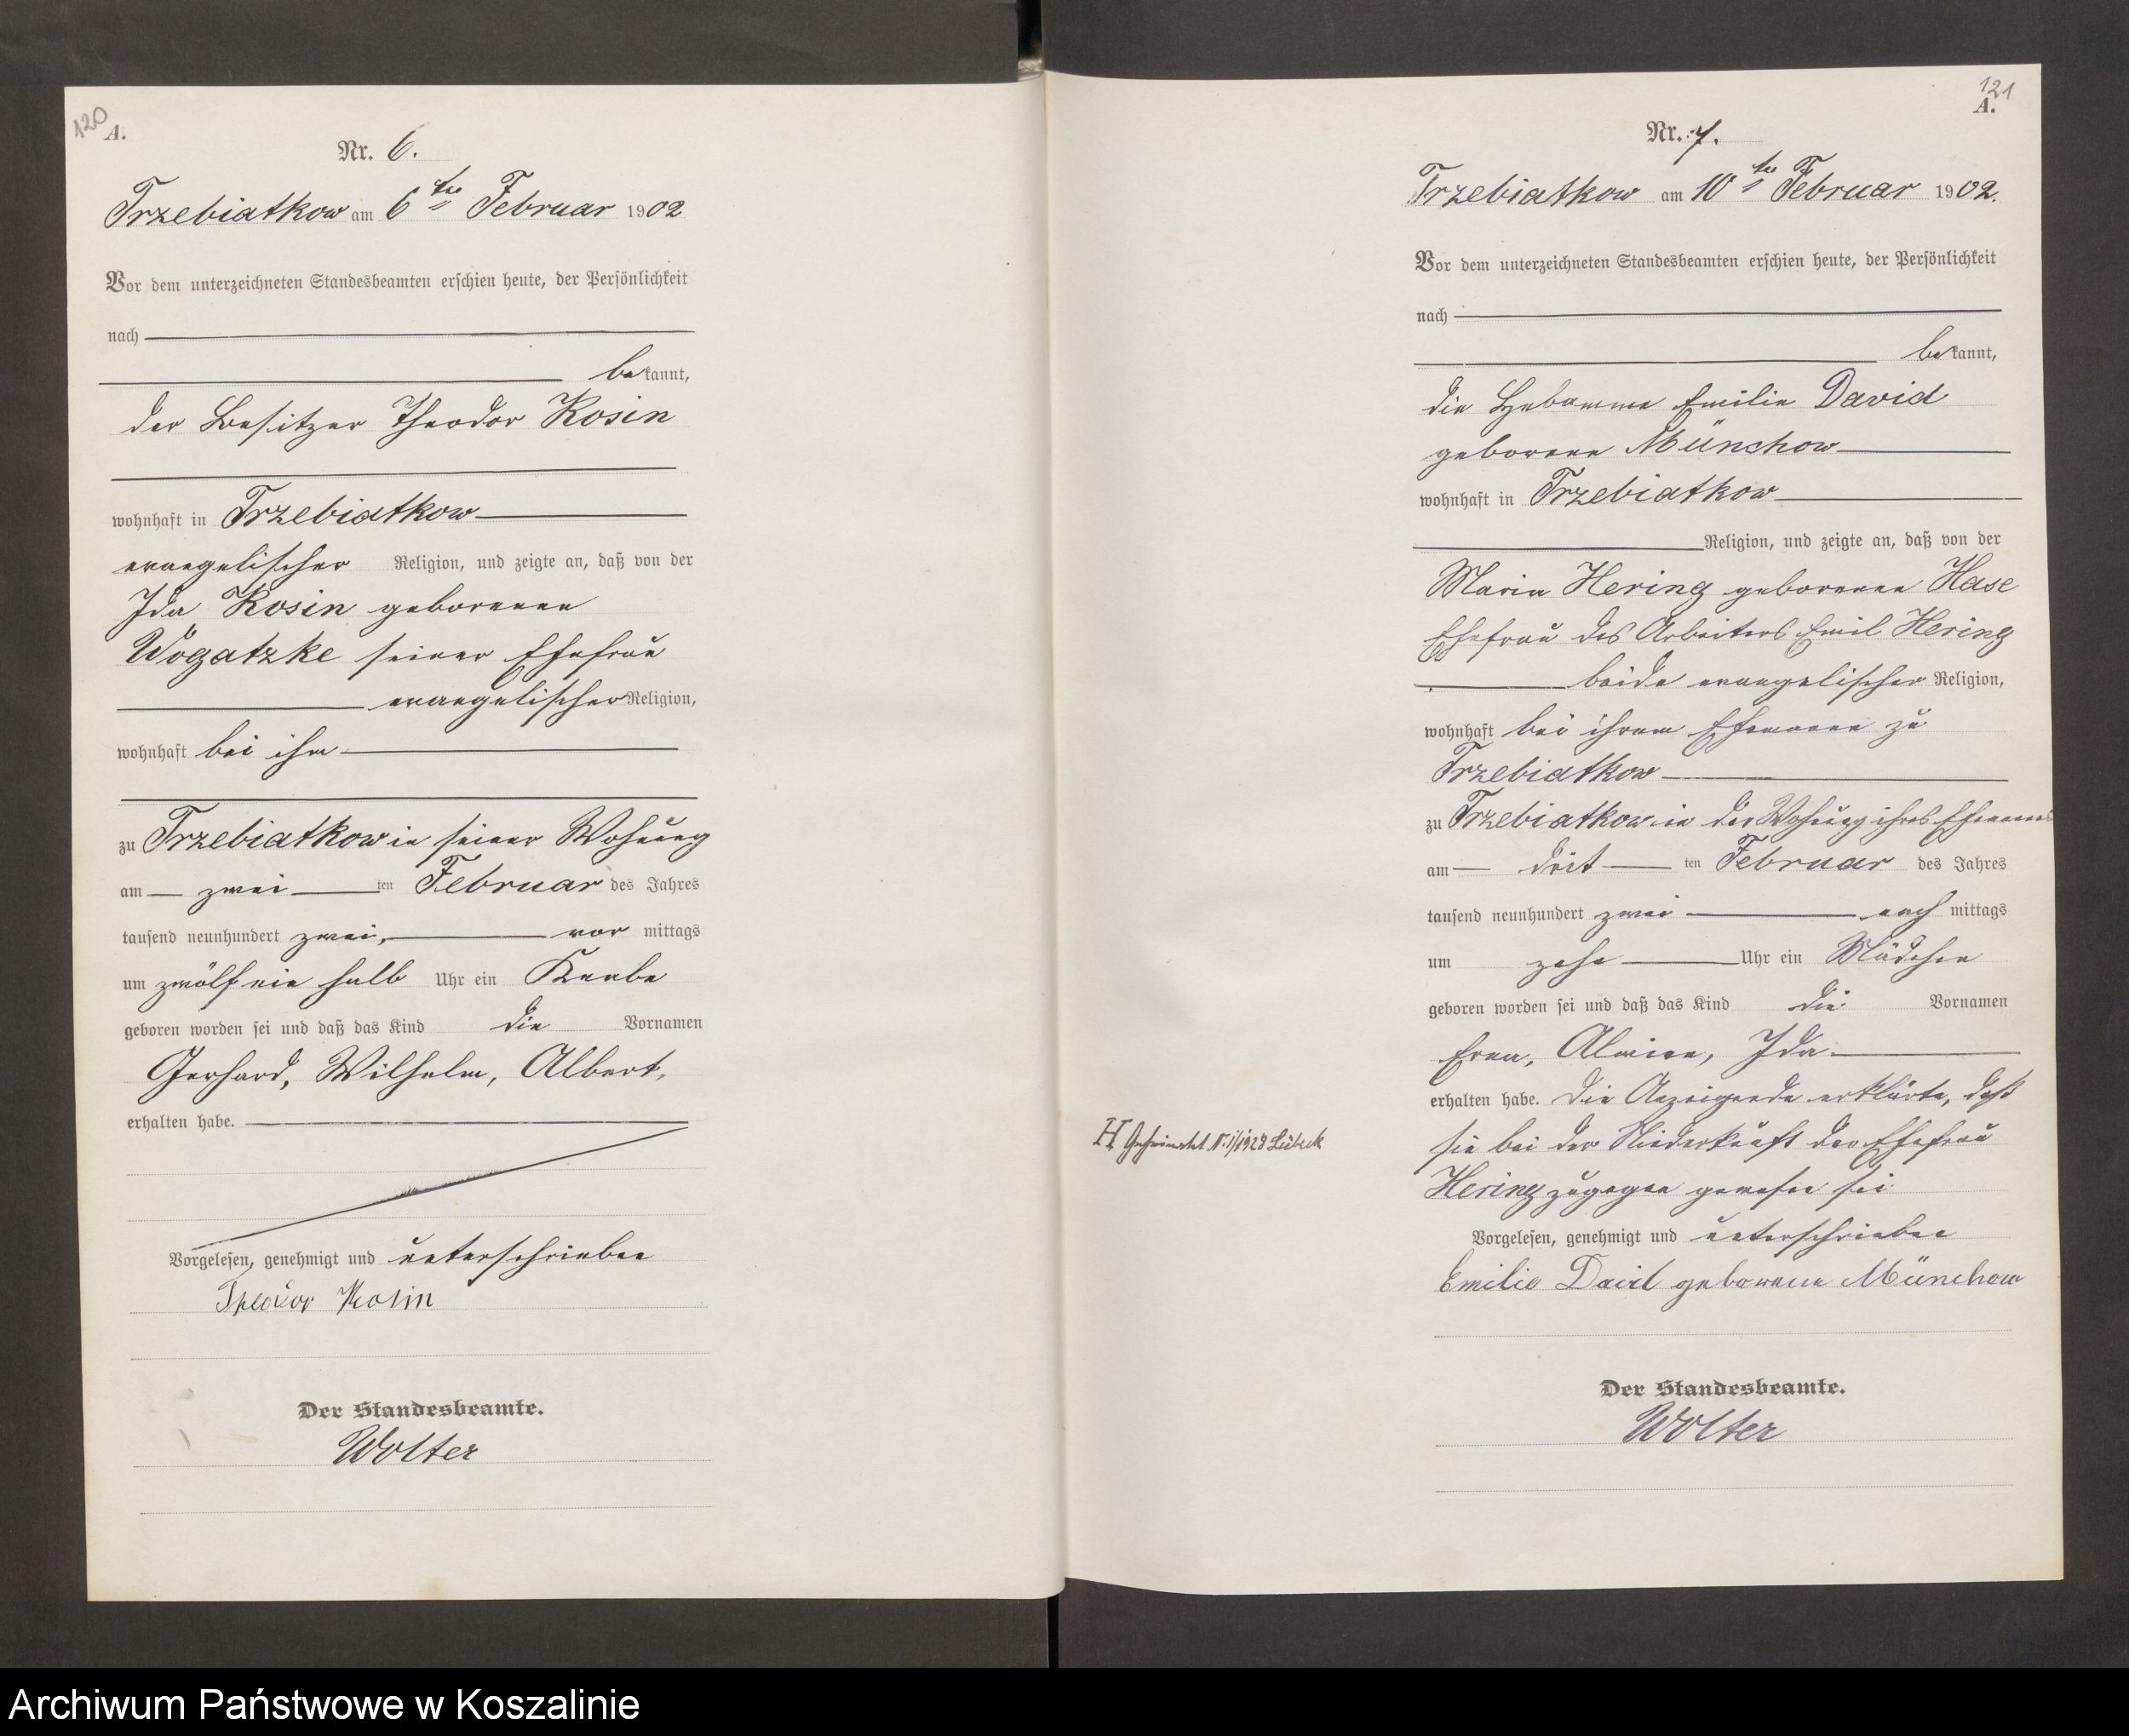 120
A.
Nr. 6.
Trzebiatkow am 6ten Februar 1902
Vor dem unterzeichneten Standesbeamten erschien heute, der Persönlichkeit
nach
bekannt,
der Besitzer Theodor Kosin
wohnhaft in Trzebiatkow
evangelischer Religion, und zeigte an, daß von der
Ida Kosin geborenen
Wogatzke seiner Ehefrau
evangelischer Religion,
wohnhaft bei ihm
zu Trzebiatkow in seiner Wohnung
am zweiten Februar des Jahres
tausend neunhundert zwei, vormittags
um zwölf ein halb Uhr ein Knabe
geboren worden sei und daß das Kind die Vornamen
Gerhard, Wilhelm, Albert,
erhalten habe.
Vorgelesen, genehmigt und unterschrieben
Theodor Kosin
Der Standesbeamte.
Wolter
121
A.
Nr. 7.
Trzebiatkow am 10ten Februar 1902.
Vor dem unterzeichneten Standesbeamten erschien heute, der Persönlichkeit
nach
bekannt,
die Hebamme Emilie David
geborene Münchow
wohnhaft in Trzebiatkow
Religion, und zeigte an, daß von der
Maria Hering geborenen Hase
Ehefrau des Arbeiters Emil Hering
beide evangelischer Religion,
wohnhaft bei ihrem Ehemann zu
Trzebiatkow
zu Trzebiatkow in der Wohnung ihres Ehemanns
am dritten Februar des Jahres
tausend neunhundert zwei nachmittags
um zehn Uhr ein Mädchen
geboren worden sei und daß das Kind die Vornamen
Erna, Alwine, Ida
erhalten habe. Die Anzeigende erklärte, daß
sie bei der Niederkunft der Ehefrau
Hering zugegen gewesen sei
H Geheiratet Nr. 1/1928 Lübeck
Vorgelesen, genehmigt und unterschrieben
Emilie David geborene Münchow
Der Standesbeamte.
Wolter
Archiwum Państwowe w Koszalinie